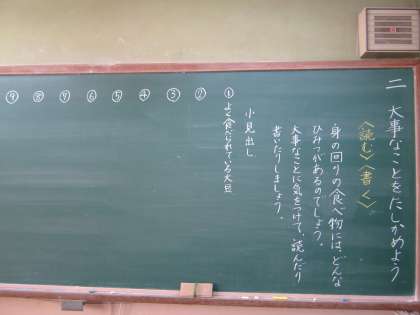 二 大事なことをたしかめよう
〈読む〉〈書く〉
身の回りの食べ物には、どんな
ひみつがあるのでしょう。
大事なことに気をつけて、読んだり
書いたりしましょう。
小見出し
① よく食べられている大豆
②
③
④
⑤
⑥
⑦
⑧
⑨